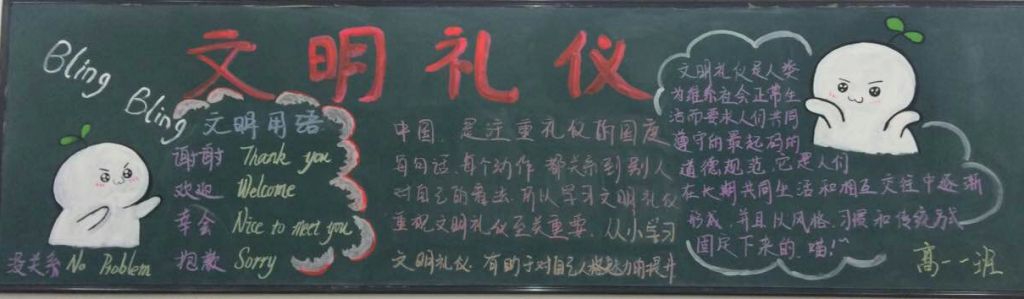 Bling
Bling
文明礼仪
文明用语
谢谢 Thank you
欢迎 Welcome
幸会 Nice to meet you
抱歉 Sorry
没关系 No Problem
中国，是注重礼仪的国度
每句话、每个动作 都关系到别人
对自己的看法，所以学习文明礼仪
重视文明礼仪至关重要，从小学习
文明礼仪，有助于对自己人格魅力的提升
文明礼仪是人类
为维系社会正常生
活而要求人们共同
遵守的最起码的
道德规范，它是人们
在长期共同生活和相互交往中逐渐
形成，并且以风俗、习惯和传统等
固定下来的，喵！~
高一一班